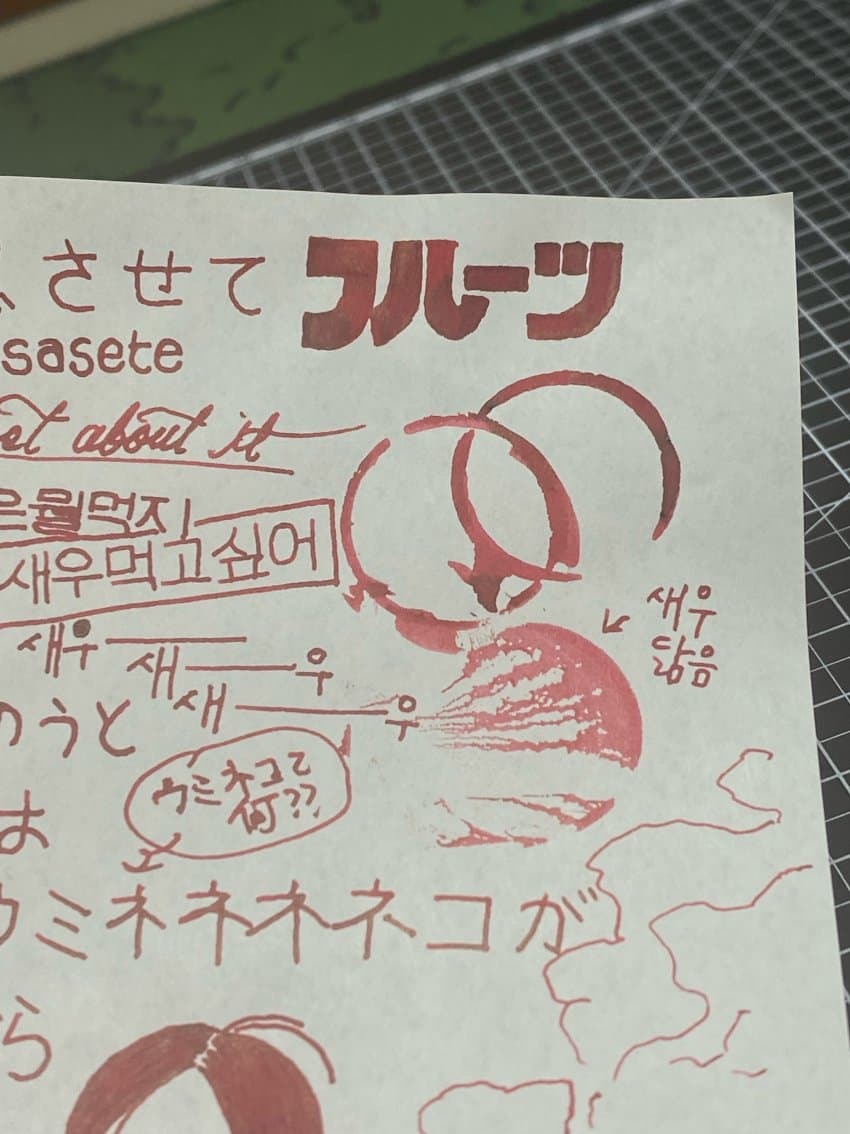 させて フルーツ
sasete
about it
은월먹지
새우먹고싶어
새우
새 우
새 우
새우
닮음
のうと
ウミネコて
何??
は
ウミネネネネコが
ら